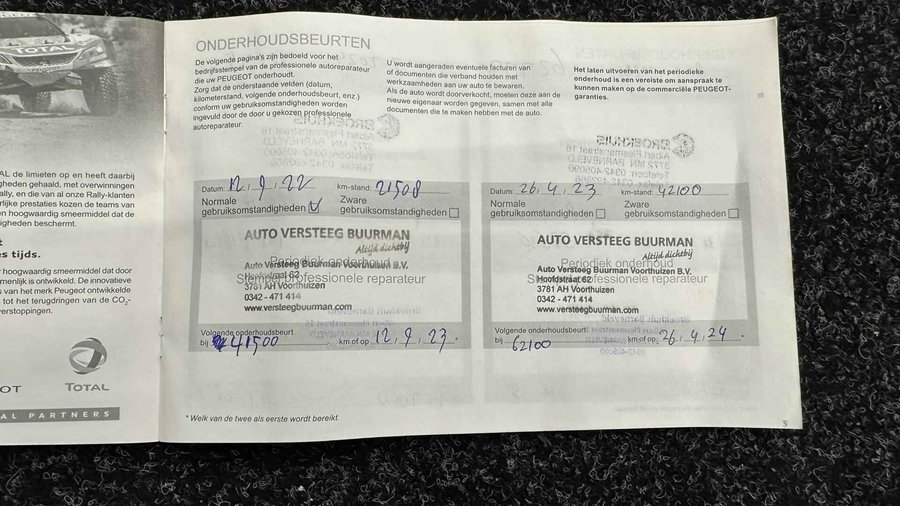 TOTAL
AL de limieten op en heeft daarbij
gheden gehaald, met overwinningen
ally, en die van al onze Rally-klanten
rlijke prestaties kozen de teams van
en hoogwaardig smeermiddel dat de
igheden beschermt.
t
es tijds.
r hoogwaardig smeermiddel dat door
menlijk is ontwikkeld. De innovatieve
s van het merk Peugeot ontwikkelde
tot het terugdringen van de CO₂-
verstoppingen.
OT
TOTAL
AL PARTNERS
ONDERHOUDSBEURTEN
De volgende pagina's zijn bedoeld voor het
bedrijfsstempel van de professionele autoreparateur
die uw PEUGEOT onderhoudt.
Zorg dat de onderstaande velden (datum,
kilometerstand, volgende onderhoudsbeurt, enz.)
conform uw gebruiksomstandigheden worden
ingevuld door de door u gekozen professionele
autoreparateur.
U wordt aangeraden eventuele facturen van
of documenten die verband houden met
werkzaamheden aan uw auto te bewaren.
Als de auto wordt doorverkocht, moeten deze aan de
nieuwe eigenaar worden gegeven, samen met alle
documenten die te maken hebben met de auto.
Het laten uitvoeren van het periodieke
onderhoud is een vereiste om aanspraak te
kunnen maken op de commerciële PEUGEOT-
garanties.
Datum: 12.9.22 km-stand: 21508
Normale
gebruiksomstandigheden
Zware
gebruiksomstandigheden
AUTO VERSTEEG BUURMAN
Altijd dichtbij
Periodiek onderhoud
Auto Versteeg Buurman Voorthuizen B.V.
Stempel professionele reparateur
Hoofdstraat 62
3781 AH Voorthuizen
0342 - 471 414
www.versteegbuurman.com
Volgende onderhoudsbeurt
bij 41500 km of op 12.9.23.
Datum: 26.4.23 km-stand: 42100
Normale
gebruiksomstandigheden
Zware
gebruiksomstandigheden
AUTO VERSTEEG BUURMAN
Altijd dichtbij
Periodiek onderhoud
Auto Versteeg Buurman Voorthuizen B.V.
Stempel professionele reparateur
Hoofdstraat 62
3781 AH Voorthuizen
0342 - 471 414
www.versteegbuurman.com
Volgende onderhoudsbeurt
bij 62100 km of op 26.4.24.
* Welk van de twee als eerste wordt bereikt.
3